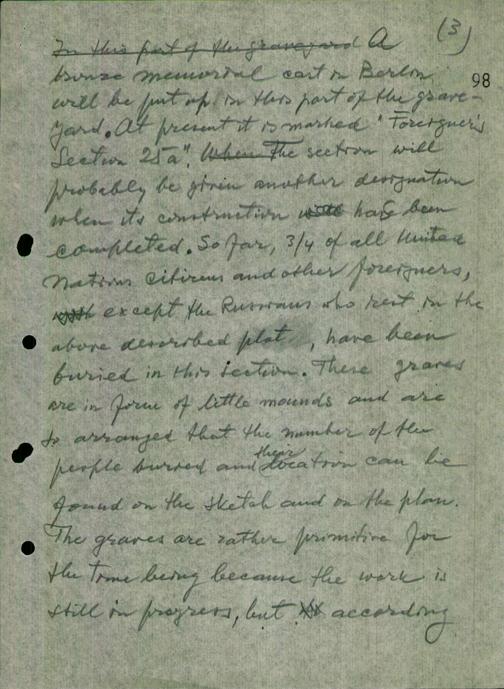 (3)
In this part of the graveyard A
98
bronze memorial cast in Berlin
will be put up in this part of the grave-
yard. At present it is marked "Foreigner's
Section 25a". When The section will
probably be given another designation
when its construction will has been
completed. So far, 3/4 of all United
Nations citizens and other foreigners,
except the Russians who rest in the
above described plot, have been
buried in this section. These graves
are in form of little mounds and are
so arranged that the number of the
people buried and their location can be
found on the sketch and on the plan.
The graves are rather primitive for
the time being because the work is
still in progress, but according